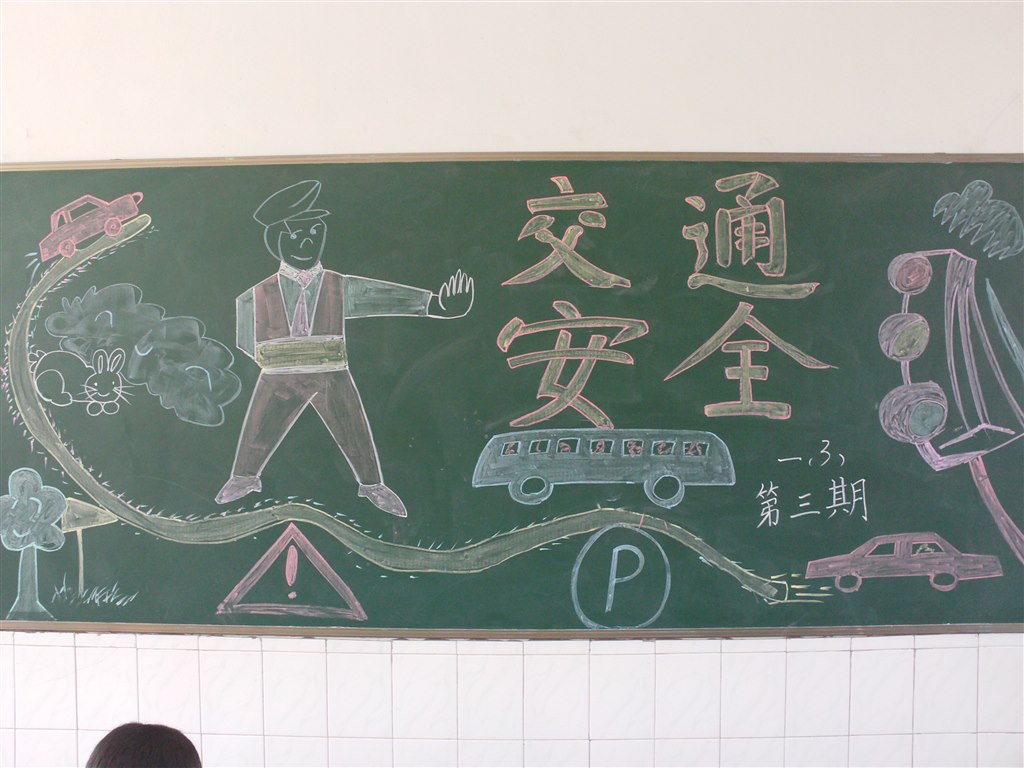 交通
安全
一、3、
第三期
P
!